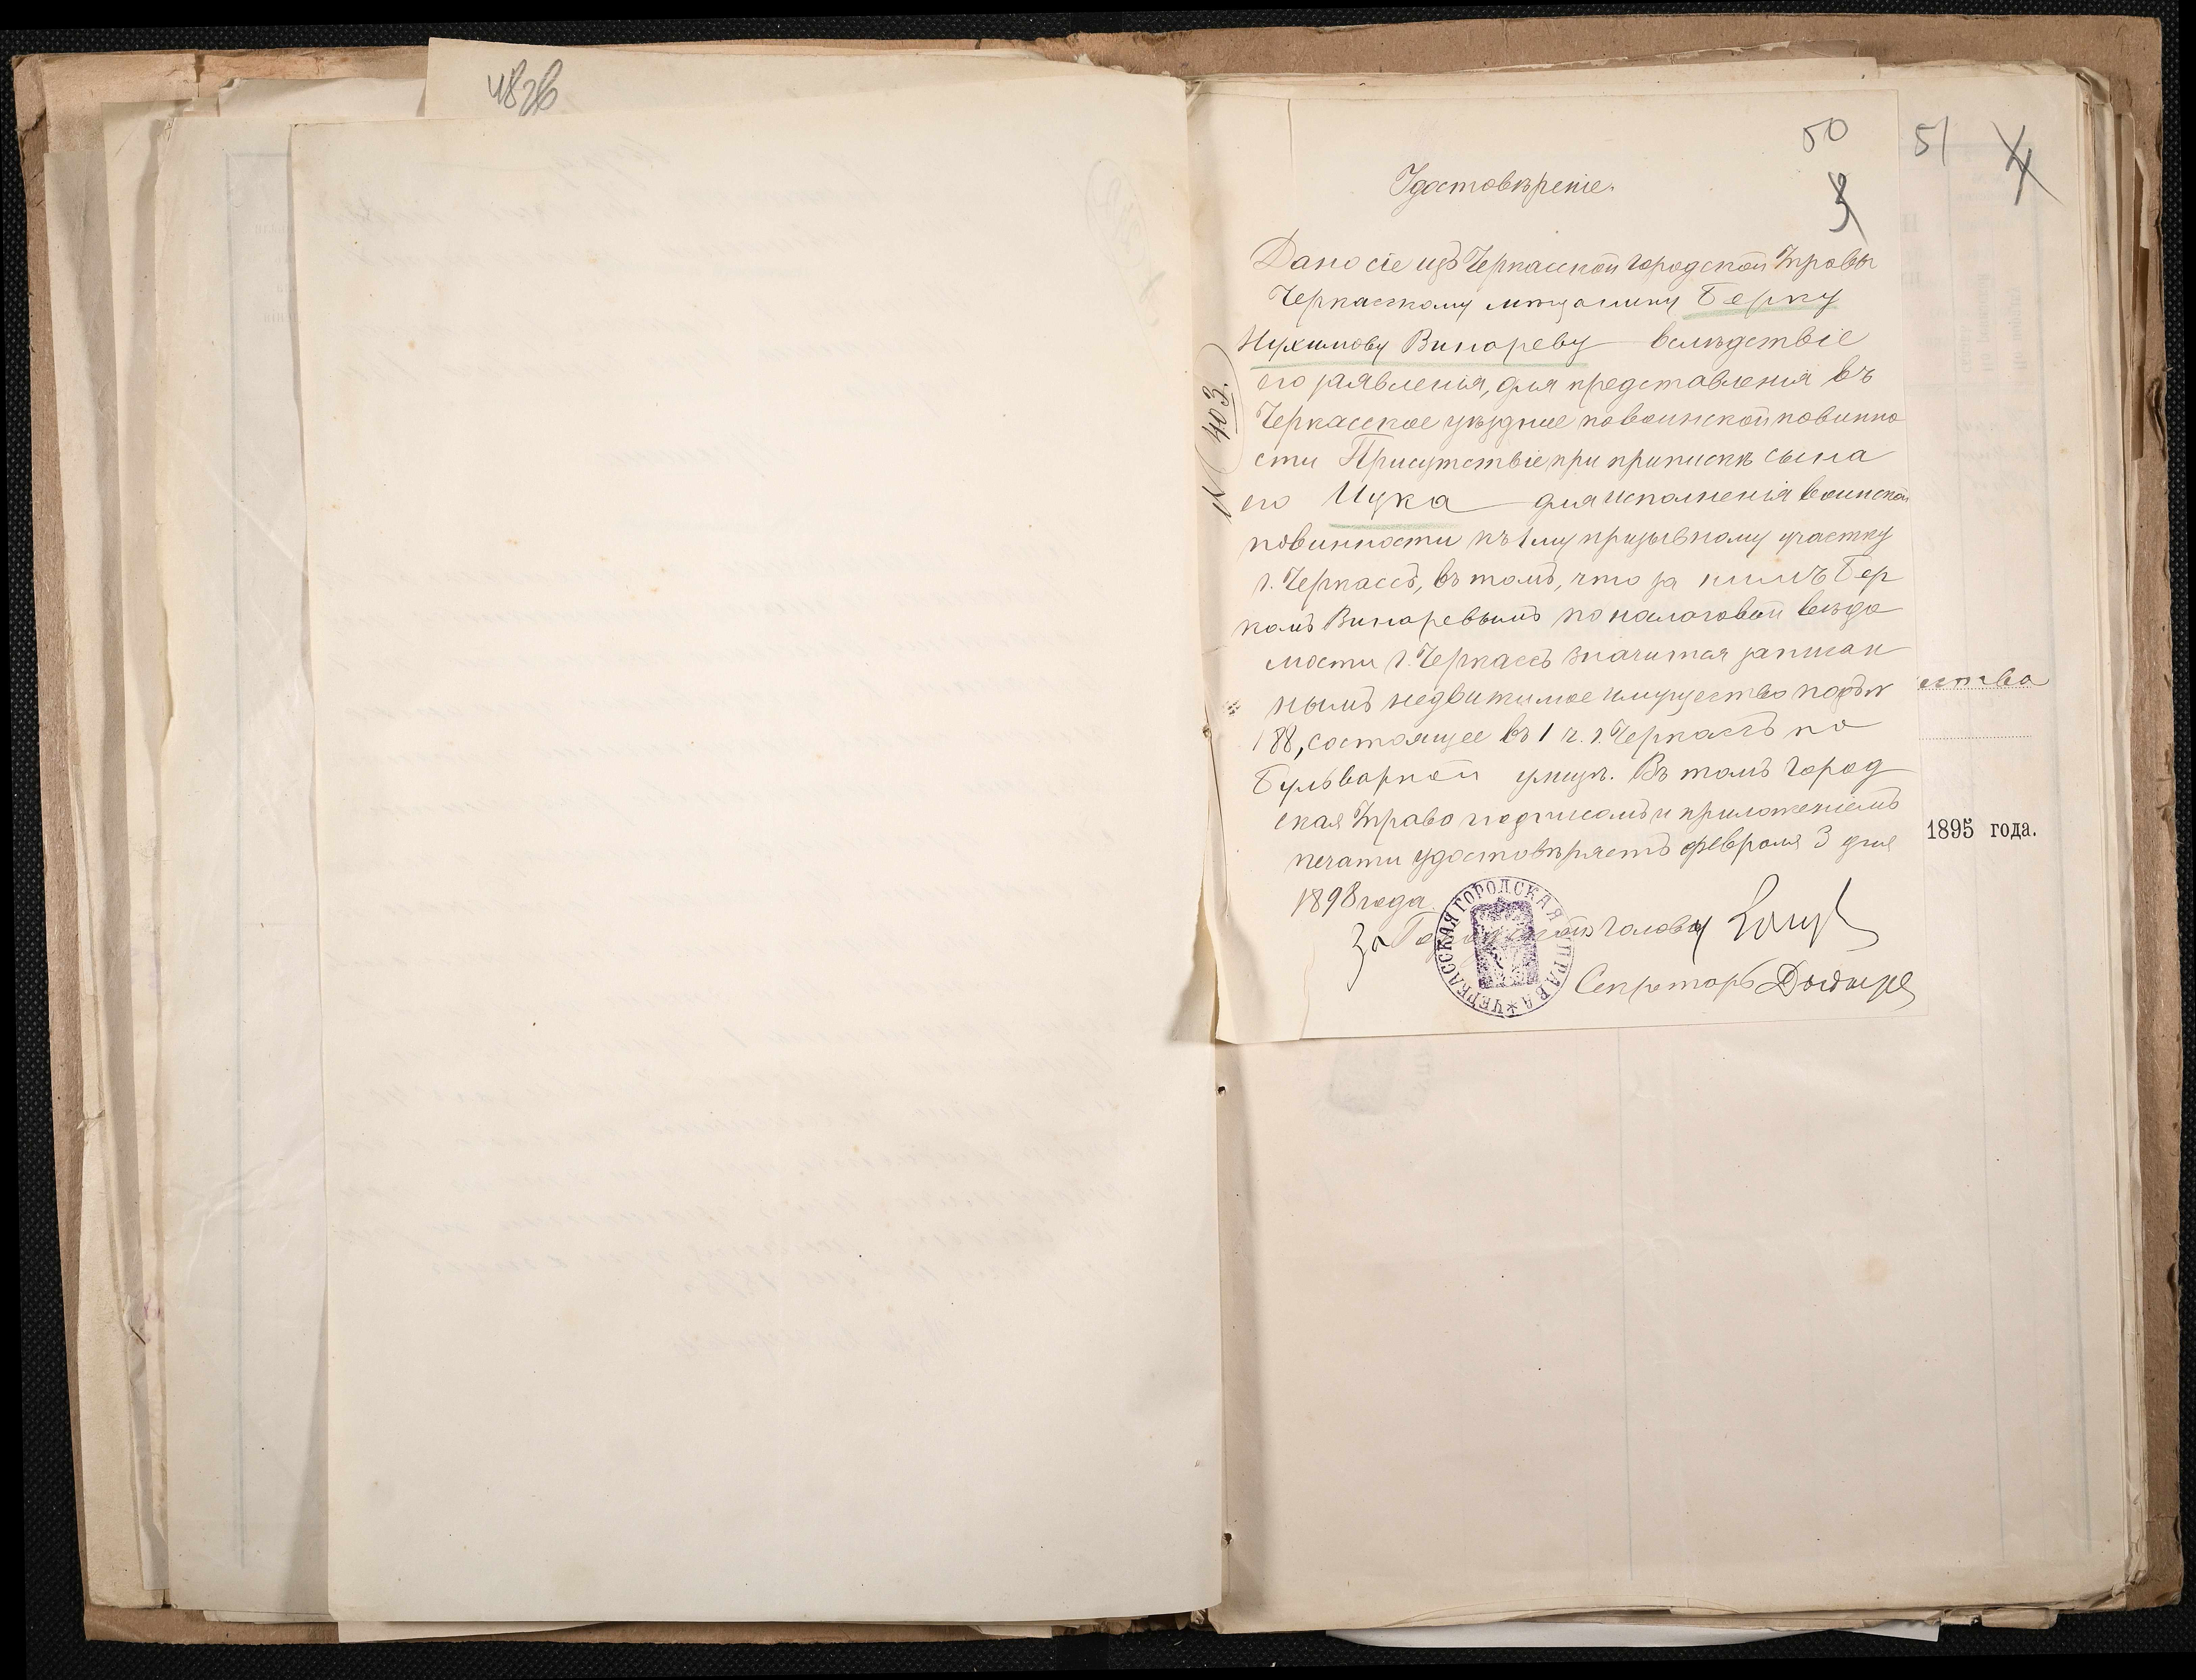 50
51
Удостовѣреніе.
Дано сіе изъ Черкасской Городской Управы
Черкасскому мѣщанину Берку
Нухимову Винареву вслѣдствіе
его заявленія, для представленія въ
Черкасское уѣздное по воинской повинно
сти Присутствіе при припискѣ сына
его Ицка для исполненія воинской
повинности къ 1му призывному участку
г. Черкассъ, въ томъ, что за нимъ Бер
комъ Винаревымъ по налоговой вѣдо
мости г. Черкассъ значится записан
нымъ недвижимое имущество подъ №
188, состоящее въ 1 ч. г. Черкассъ по
Бульварной улицѣ. Въ томъ Город
ская Управа подписомъ и приложеніемъ
печати удостовѣряетъ февраля 3 дня
1898 года.
За Городского Голову
Секретарь
№ 403.
ЧЕРКАССКАЯ ГОРОДСКАЯ УПРАВА
ества
1895 года.